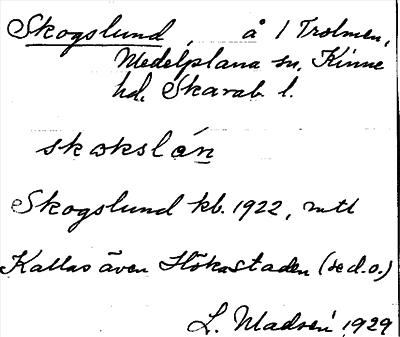 Skogslund, å 1 Trolmen,
Medelplana sn, Kinne
hd, Skarab. l.
skokslán
Skogslund kb. 1922, mtl
Kallas även Hökastaden (se d.o.)
L. Madsén 1929